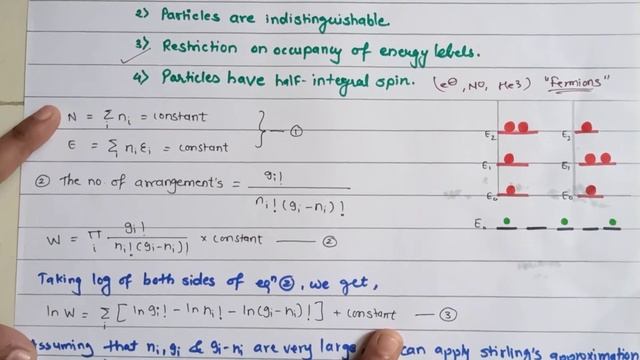 2) Particles are indistinguishable
3) Restriction on occupancy of energy levels.
4) Particles have half-integral spin. (e⊖, NO, He3) "fermions"
N = Σᵢ nᵢ = constant
E = Σᵢ nᵢ εᵢ = constant } — ①
② The no of arrangement's = gᵢ! / nᵢ! (gᵢ-nᵢ)!
W = Πᵢ gᵢ! / nᵢ! (gᵢ-nᵢ)! × constant — ②
E₂ E₂
E₁ E₁
E₀ E₀
E₀
Taking log of both sides of eqⁿ ②, we get,
ln W = Σᵢ [ ln gᵢ! - ln nᵢ! - ln (gᵢ-nᵢ)! ] + constant — ③
Assuming that nᵢ, gᵢ & gᵢ-nᵢ are very large can apply stirling's approximation